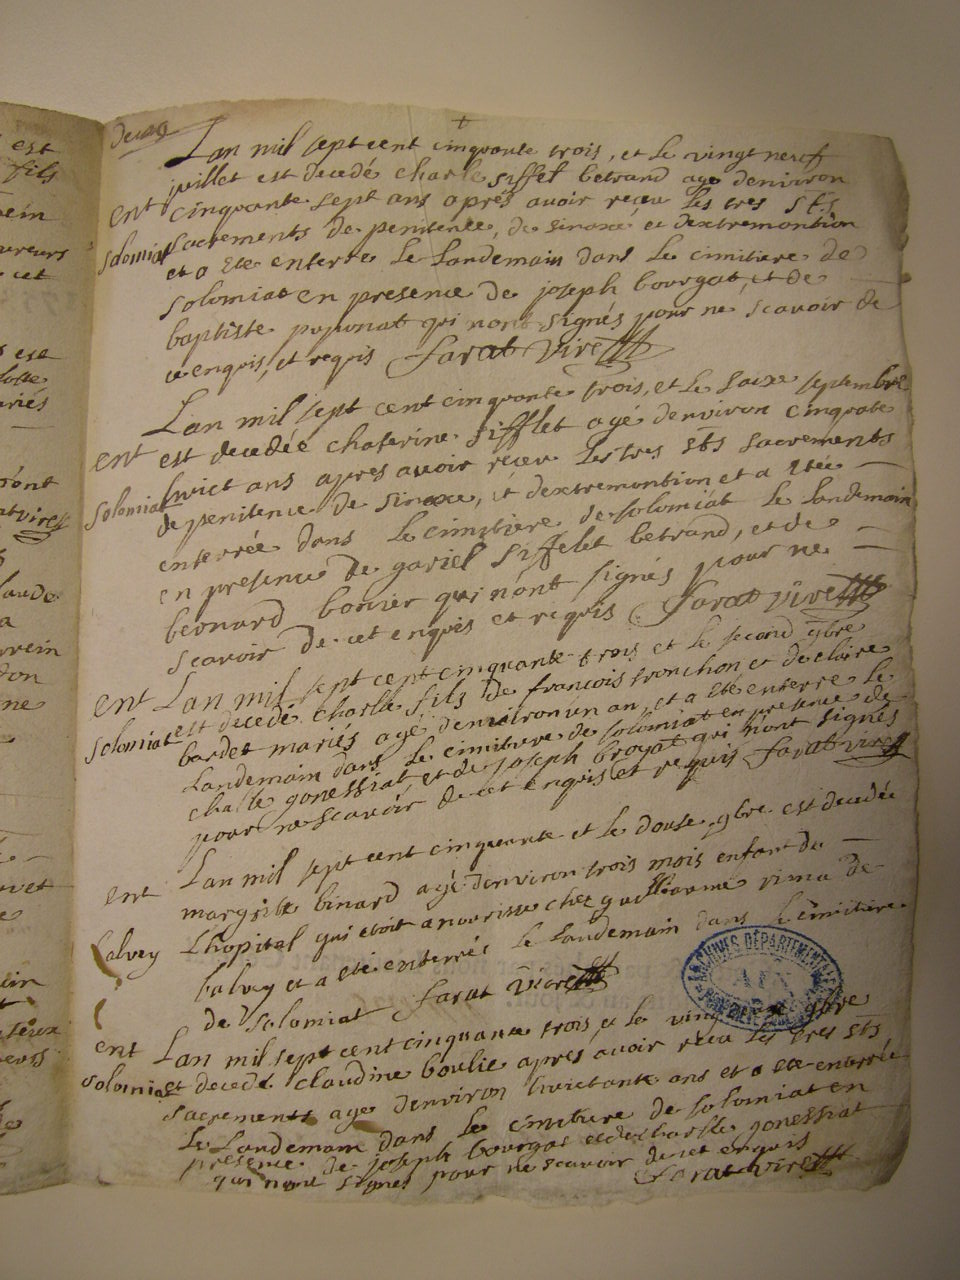 Lan mil sept cent cinquante trois, et le vingt neuf
juillet est decedé charle siffet betrand age denviron
ent cinquante sept ans aprés avoir receu les tres sts
solomiat sacrements de penitence, de sinaxe et dextremontion
et a ete enterre le Landemain dans le cimitiere de
solomiat en presence de joseph bourgat, et de
baptiste puponat qui nont signés pour ne scavoir de
ce enquis, et requis farat vire
Lan mil sept cent cinquante trois, et le saixe septembre
ent est decedée chaterine sifflet agé denviron cinquate
solomiat huict ans apres avoir receu les tres sts sacrements
de penitence de sinaxe, et dextremontion et a etée
enterrée dans le cimitiere de solomiat le landemain
en presence de gariel siffelet betrand, et de
bernard bonier qui nont signés pour ne
scavoir de cet enquis et requis farat vire
ent Lan mil sept cent cinquante trois et le second 9bre
solomiat est decedé charle fils de francois tronchon et de claire
bardet mariés agé denviron un an, et a ete enterre le
Landemain dans le cimitiere de solomiat en presence de
charle gonessiat, et de joseph broyat qui nont signés
pour ne scavoir de cet enquis et requis farat vire
Lan mil sept cent cinquante et le douse 9bre est decedée
ent margrite binard agé denviron trois mois enfant de
balvey Lhopital qui etoit a nourisse chez guilliaume rima de
balvey et a eté enterrée le Landemain dans le cimitiere
de solomiat farat vire
ARCHIVES DÉPARTEMENTALES
AIN
ent Lan mil sept cent cinquante trois et le 9bre
solomiat est decedé claudine boulie apres avoir receu les tres sts
sacrements age denviron huictante ans et a ete enterrée
Le Landemain dans le cimitiere de solomiat en
presence de joseph bourgat et de charle gonessiat
qui nont signes pour ne scavoir de cet enquis
farat vire